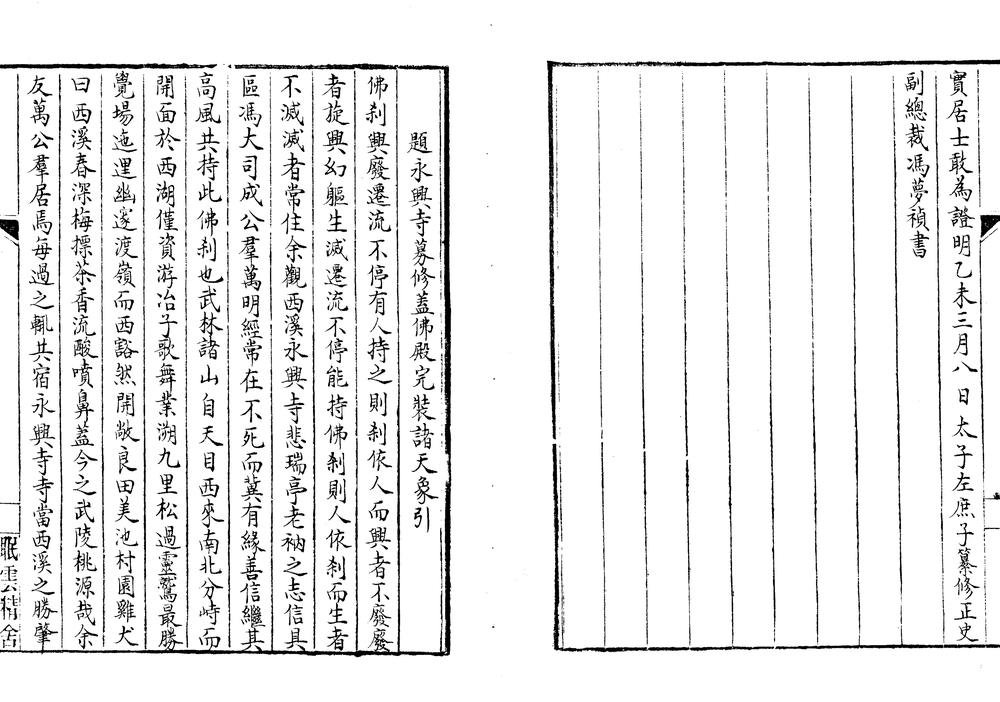 實居士敢為證明乙未三月八日太子左庶子纂修正史
副總裁馮夢禎書
題永興寺募修蓋佛殿完裝諸天象引
佛剎興廢遷流不停有人持之則剎依人而興者不廢廢
者旋興幻軀生滅遷流不停能持佛剎則人依剎而生者
不滅滅者常住余觀西溪永興寺悲瑞亭老衲之志信具
區馮大司成公羣萬明經常在不死而冀有緣善信繼其
高風共持此佛剎也武林諸山自天目西來南北分峙而
開面於西湖僅資游冶子歌舞業溯九里松過靈鷲最勝
覺場迤邐幽邃渡嶺而西豁然開敞良田美池村園雞犬
曰西溪春深梅摽茶香流酸噴鼻蓋今之武陵桃源哉余
友萬公羣居焉每過之輒共宿永興寺寺當西溪之勝肇
眠雲精舍